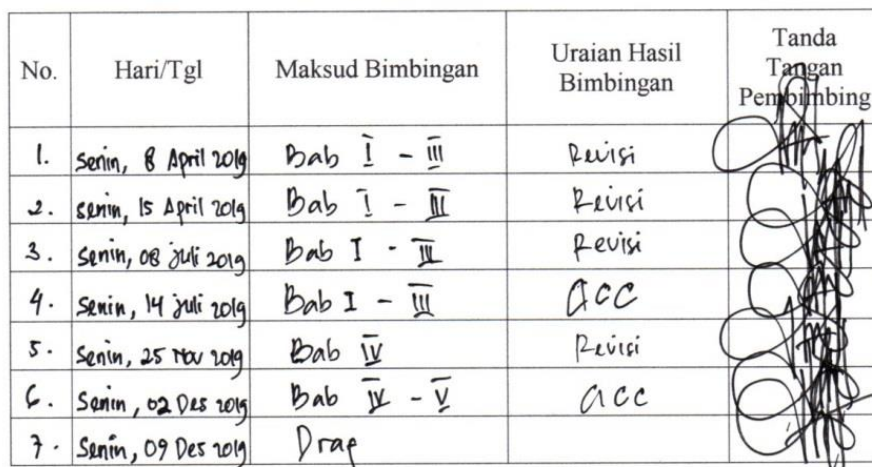 No. Hari/Tgl Maksud Bimbingan Uraian Hasil Bimbingan Tanda Tangan Pembimbing
1. Senin, 8 April 2019 Bab I - III Revisi
2. Senin, 15 April 2019 Bab I - III Revisi
3. Senin, 08 Juli 2019 Bab I - III Revisi
4. Senin, 14 Juli 2019 Bab I - III ACC
5. Senin, 25 Nov 2019 Bab IV Revisi
6. Senin, 02 Des 2019 Bab IV - V ACC
7. Senin, 09 Des 2019 Drap